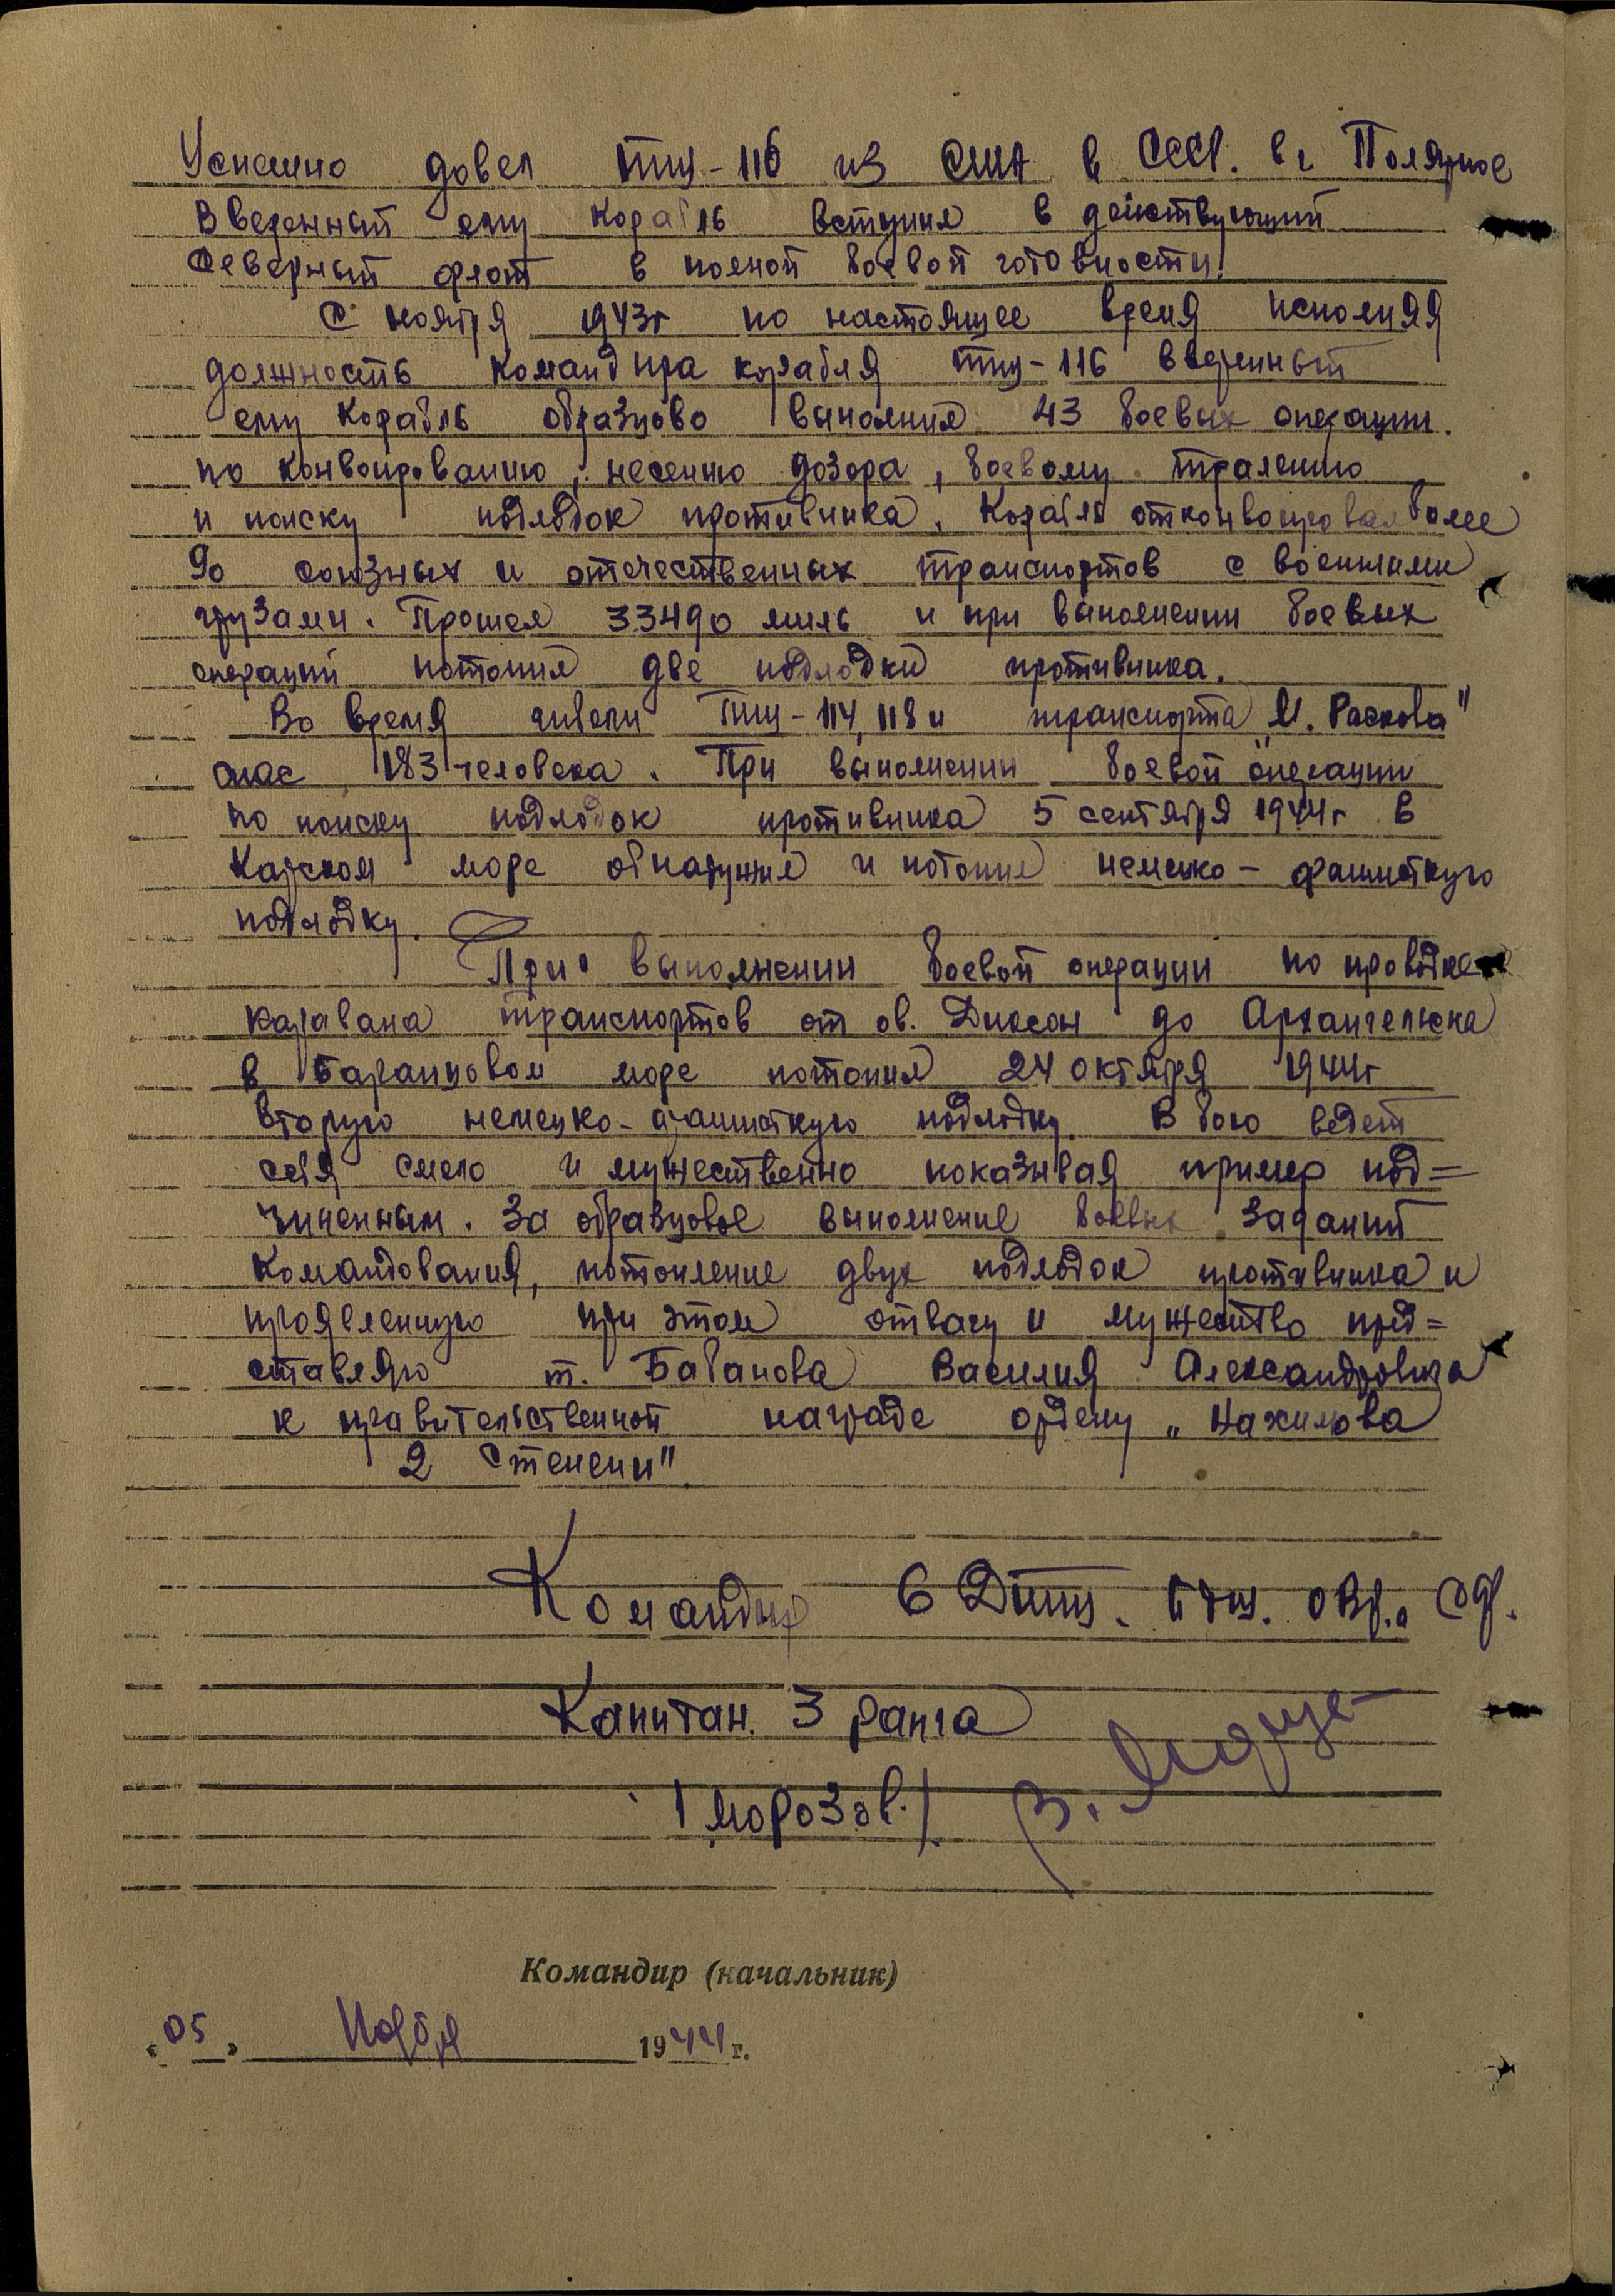 Успешно довел ТТЩ-116 из США в СССР. в г Полярное
Вверенный ему корабль вступил в действующий
Северный флот в полной боевой готовности.
С ноября 1943г по настоящее время исполняя
должность командира корабля ТТЩ-116 вверенный
ему корабль образцово выполнил 43 боевых операции.
по конвоированию, несению дозора, боевому тралению
и поиску подлодок противника. Корабль отконвоировал более
90 союзных и отечественных транспортов с военными
грузами. Прошел 33490 миль и при выполнении боевых
операций потопил две подлодки противника.
Во время гибели ТТЩ-114, 118 и транспорта „М. Раскова"
спас 183 человека. При выполнении боевой операции
по поиску подлодок противника 5 сентября 1944г в
Карском море обнаружил и потопил немецко-фашисткую
подлодку.
При выполнении боевой операции по проводке
каравана транспортов от ов. Диксон до Архангельска
в Баранцовом море потопил 24 октября 1944г
вторую немецко-фашисткую подлодку. В бою ведет
себя смело и мужественно показывая пример под=
чиненным. За образцовое выполнение боевых заданий
командования, потопление двух подлодок противника и
проявленную при этом отвагу и мужество пред=
ставляю т. Бабанова Василия Александровича
к правительственной награде ордену „Нахимова
2 степени"
Командир 6 Дттщ. Бтщ. ОВР. СФ.
Капитан. 3 ранга
/Морозов./
Командир (начальник)
«05» Ноября 1944 г.